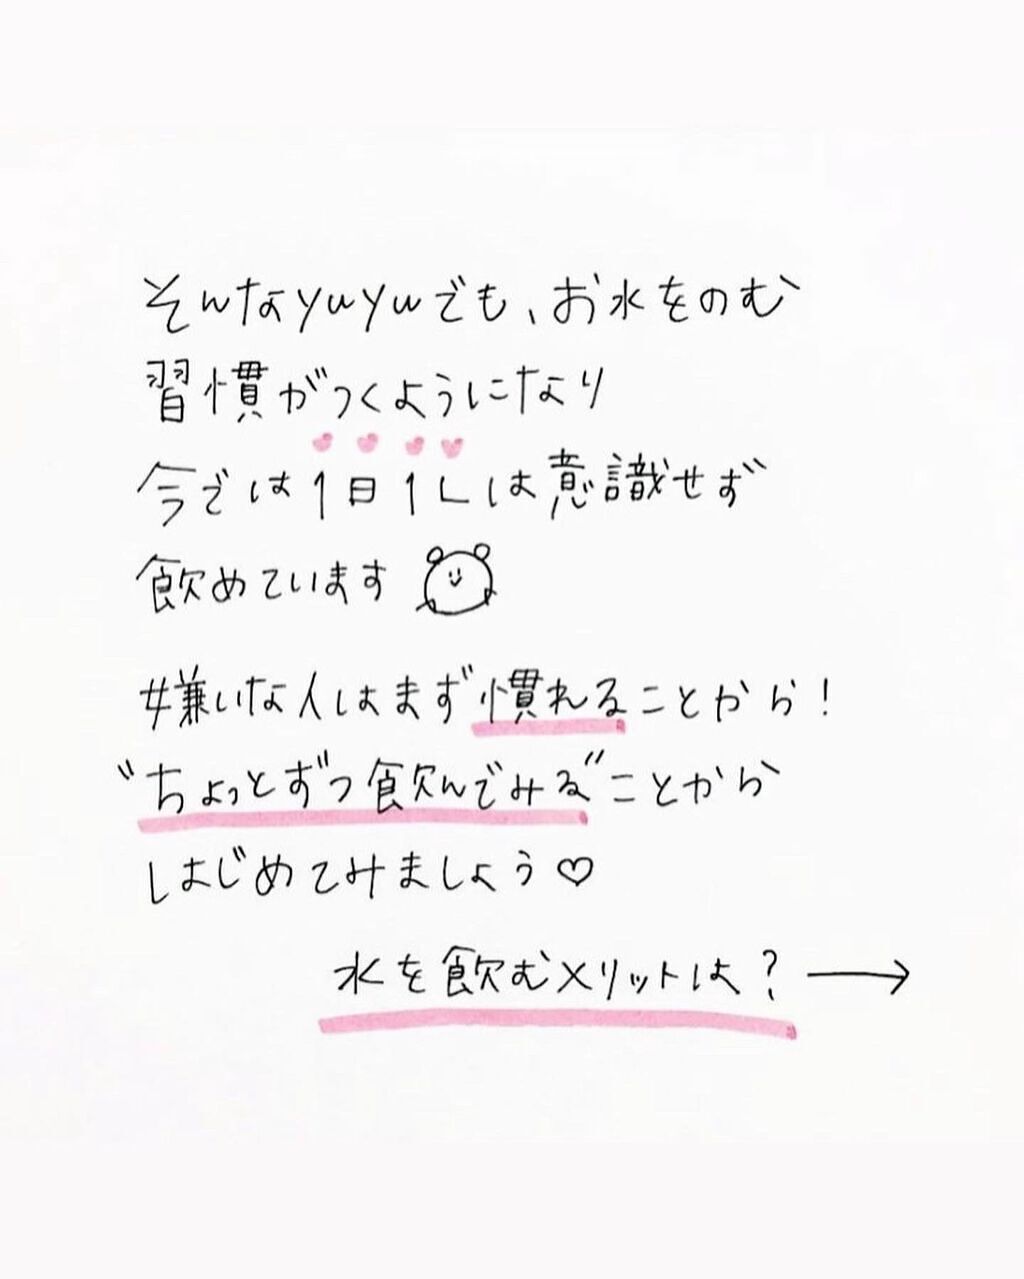 そんなyuyuでも、お水をのむ
習慣がつくようになり
今では1日1Lは意識せず
飲めています
嫌いな人はまず慣れることから!
“ちょっとずつ飲んでみる”ことから
はじめてみましょう♡
水を飲むメリットは?→